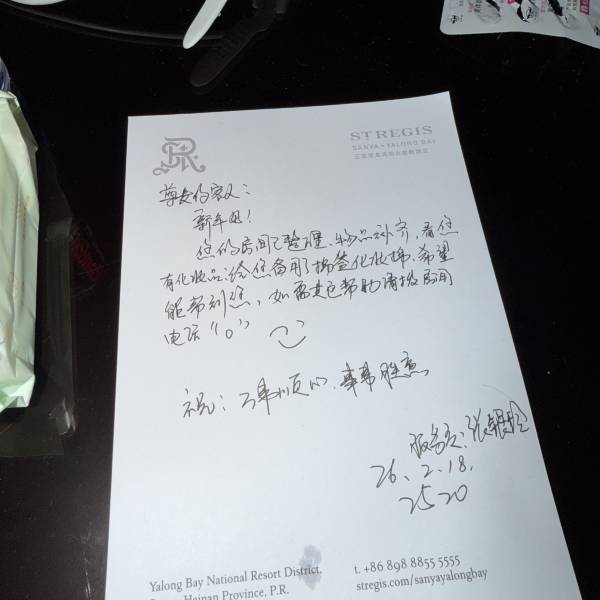 ST REGIS
SANYA • YALONG BAY
三亚亚龙湾瑞吉度假酒店
尊敬的家人:
新年好!
您的房间已整理、物品补齐,看您
有化妆品,给您备用了棉签化妆棉,希望
能帮到您,如需其它帮助请拨房间
电话“0”
祝:万事顺心、事事胜意
服务员:张
26.2.18.
2520
Yalong Bay National Resort District,
Hainan Province, P.R.
t. +86 898 8855 5555
stregis.com/sanyayalongbay